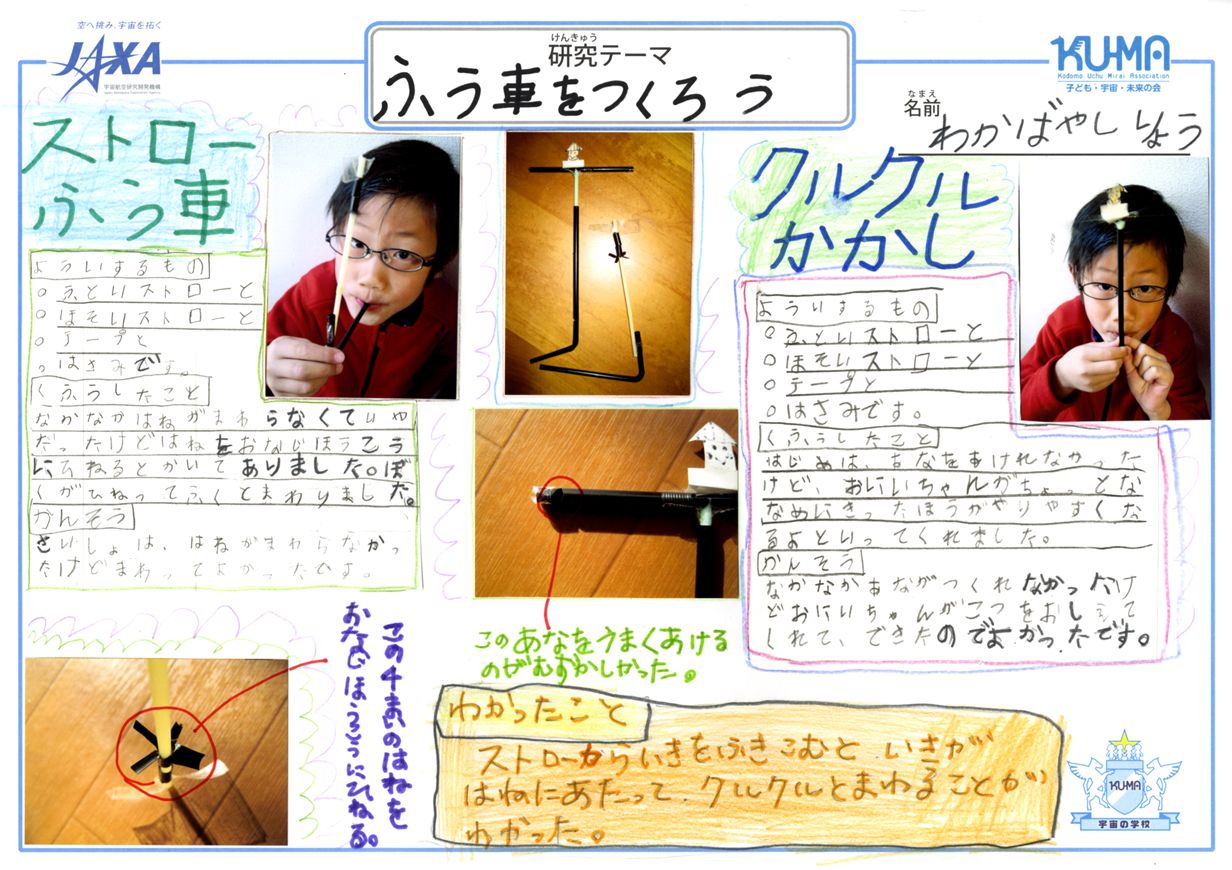 空へ挑み、宇宙を拓く
JAXA
宇宙航空研究開発機構
Japan Aerospace Exploration Agency
けんきゅう
研究テーマ
ふう車をつくろう
KU-MA
Kodomo Uchu Mirai Association
子ども・宇宙・未来の会
なまえ
名前
わかばやし しょう
ストロー
ふう車
よういするもの
○ふといストローと
○ほそいストローと
○テープと
○はさみです。
くふうしたこと
なかなかはねがまわらなくていや
だったけどはねをおなじほうこう
にひねるとかいてありました。ぼ
くがひねってふくとまわりました。
かんそう
さいしょは、はねがまわらなかっ
たけどまわってよかったです。
クルクル
かかし
よういするもの
○ふといストローと
○ほそいストローと
○テープと
○はさみです。
くふうしたこと
はじめは、あなをあけれなかった
けど、おにいちゃんがちょっとな
なめにきったほうがやりやすくな
るよといってくれました。
かんそう
なかなかあながつくれなかったけ
どおにいちゃんがこつをおしえて
くれて、できたのでよかったです。
このあなをうまくあける
のがむずかしかった。
この4まいのはねを
おなじほうこうにひねる。
わかったこと
ストローからいきをふきこむと、いきが
はねにあたって、クルクルとまわることが
わかった。
KU-MA
宇宙の学校